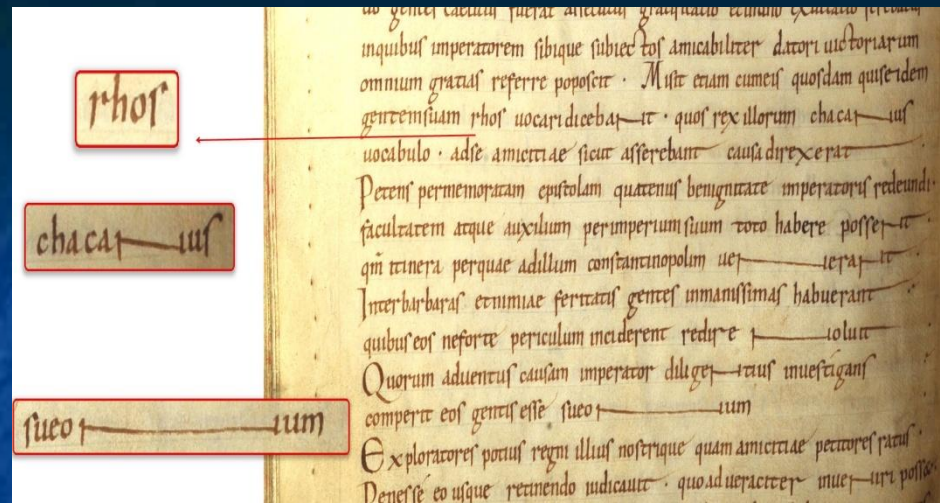 rhos
chacanus
sueonum
gentes caelitus fuerat assecutus gratulatio exultatio ferebatur
inquibus imperatorem sibique subiectos amicabiliter datori uictoriarum
omnium gratias referre poposcit · Misit etiam cumeis quosdam quise idem
gentemsuam rhos uocari dicebant · quos rex illorum chacanus
uocabulo · adse amicitiae sicut asserebant causa direxerat
Petens permemoratam epistolam quatenus benignitate imperatoris redeundi
facultatem atque auxilium perimperium suum toto habere possent
qm̄ itinera perquae adillum constantinopolim uenerant
Interbarbaras etnimiae feritatis gentes inmanissimas habuerant
quibus eos neforte periculum inciderent redire noluit
Quorum aduentus causam imperator diligentius inuestigans
comperit eos gentis esse sueonum
Exploratores potius regni illius nostrique quam amicitiae petitores ratus
Penesse eo usque retinendo iudicauit · quo ad ueraciter inueniri